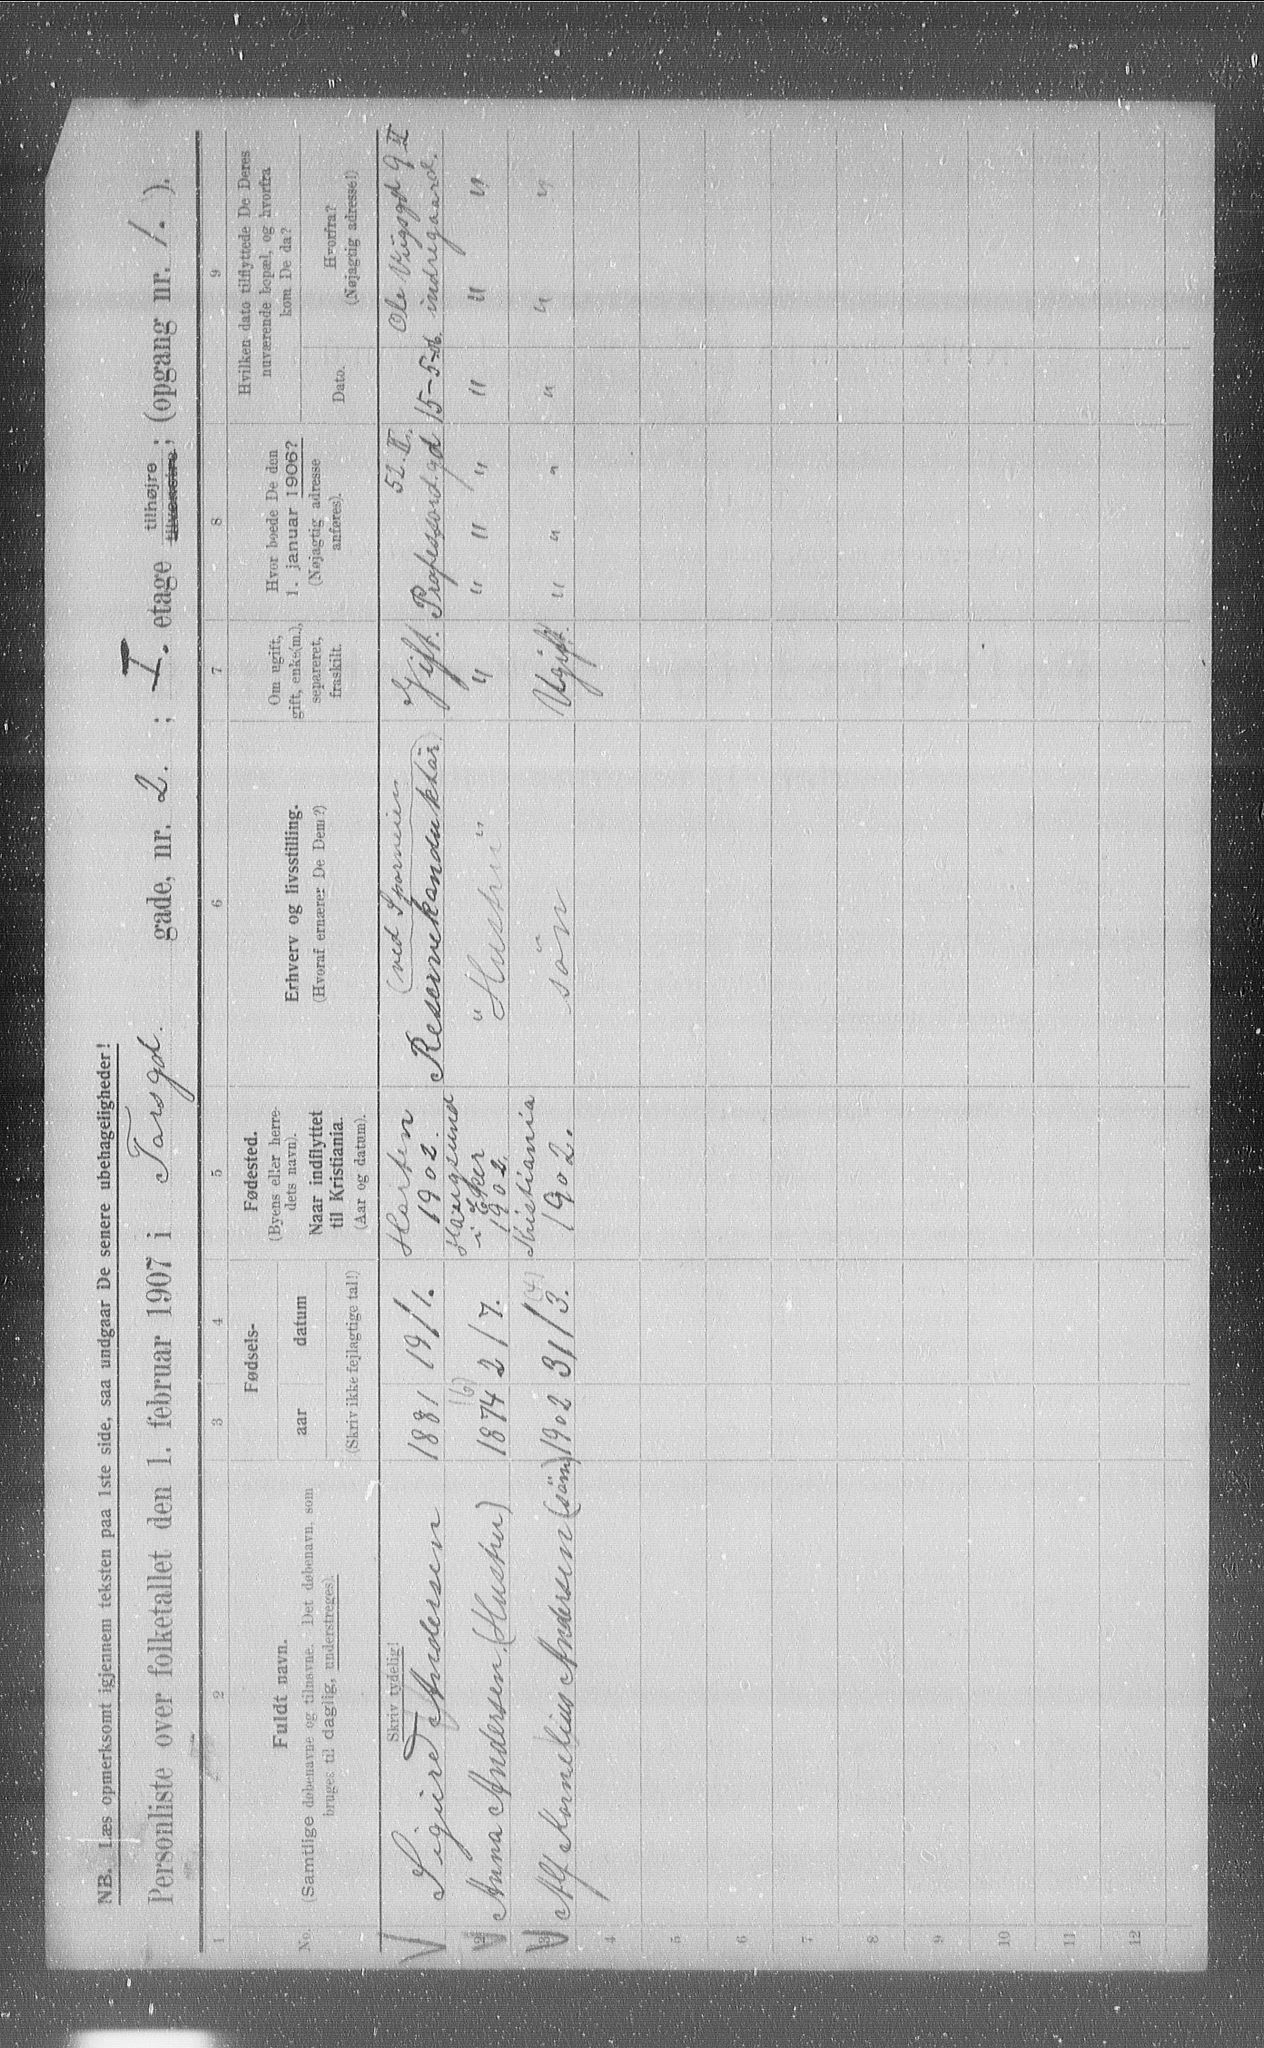 NB. Læs opmerksomt igjennem teksten paa 1ste side, saa undgaar De senere ubehageligheder!
Personliste over folketallet den 1. februar 1907 i Torsgd. gade, nr. 2. ; I. etage tilhøjre tilvenstre; (opgang nr. 1. ).
1 2 3 4 5 6 7 8 9
No.
Fuldt navn.
(Samtlige døbenavne og tilnavne. Det døbenavn, som
bruges til daglig, understreges).
Fødsels-
aar
datum
(Skriv ikke fejlagtige tal!)
Fødested.
(Byens eller herre-
dets navn).
Naar indflyttet
til Kristiania.
(Aar og datum).
Erhverv og livsstilling.
(Hvoraf ernærer De Dem?)
Om ugift,
gift, enke(m.),
separeret,
fraskilt.
Hvor boede De den
1. januar 1906?
(Nøjagtig adresse
anføres).
Hvilken dato tilflyttede De Deres
nuværende bopæl, og hvorfra
kom De da?
Dato.
Hvorfra?
(Nøjagtig adresse!)
Skriv tydelig!
V Sigurd Andersen 1881 19/1. Horten 1902. (ved Sporveien Reservekonduktör) Gift. Professord.gd 52.II. 15-5-06. Ole Viigsgd 9 II indregaard.
V 2 Anna Andersen. (Hustru) 1874 (6) 2/7. Haugsund i Eker 1902. "Hustru" " " " " " " "
V 3 Alf Kornelius Andersen (sön) 1902 31/3. (4) Kristiania 1902. sön Ugift. " " " " " "
4
5
6
7
8
9
10
11
12